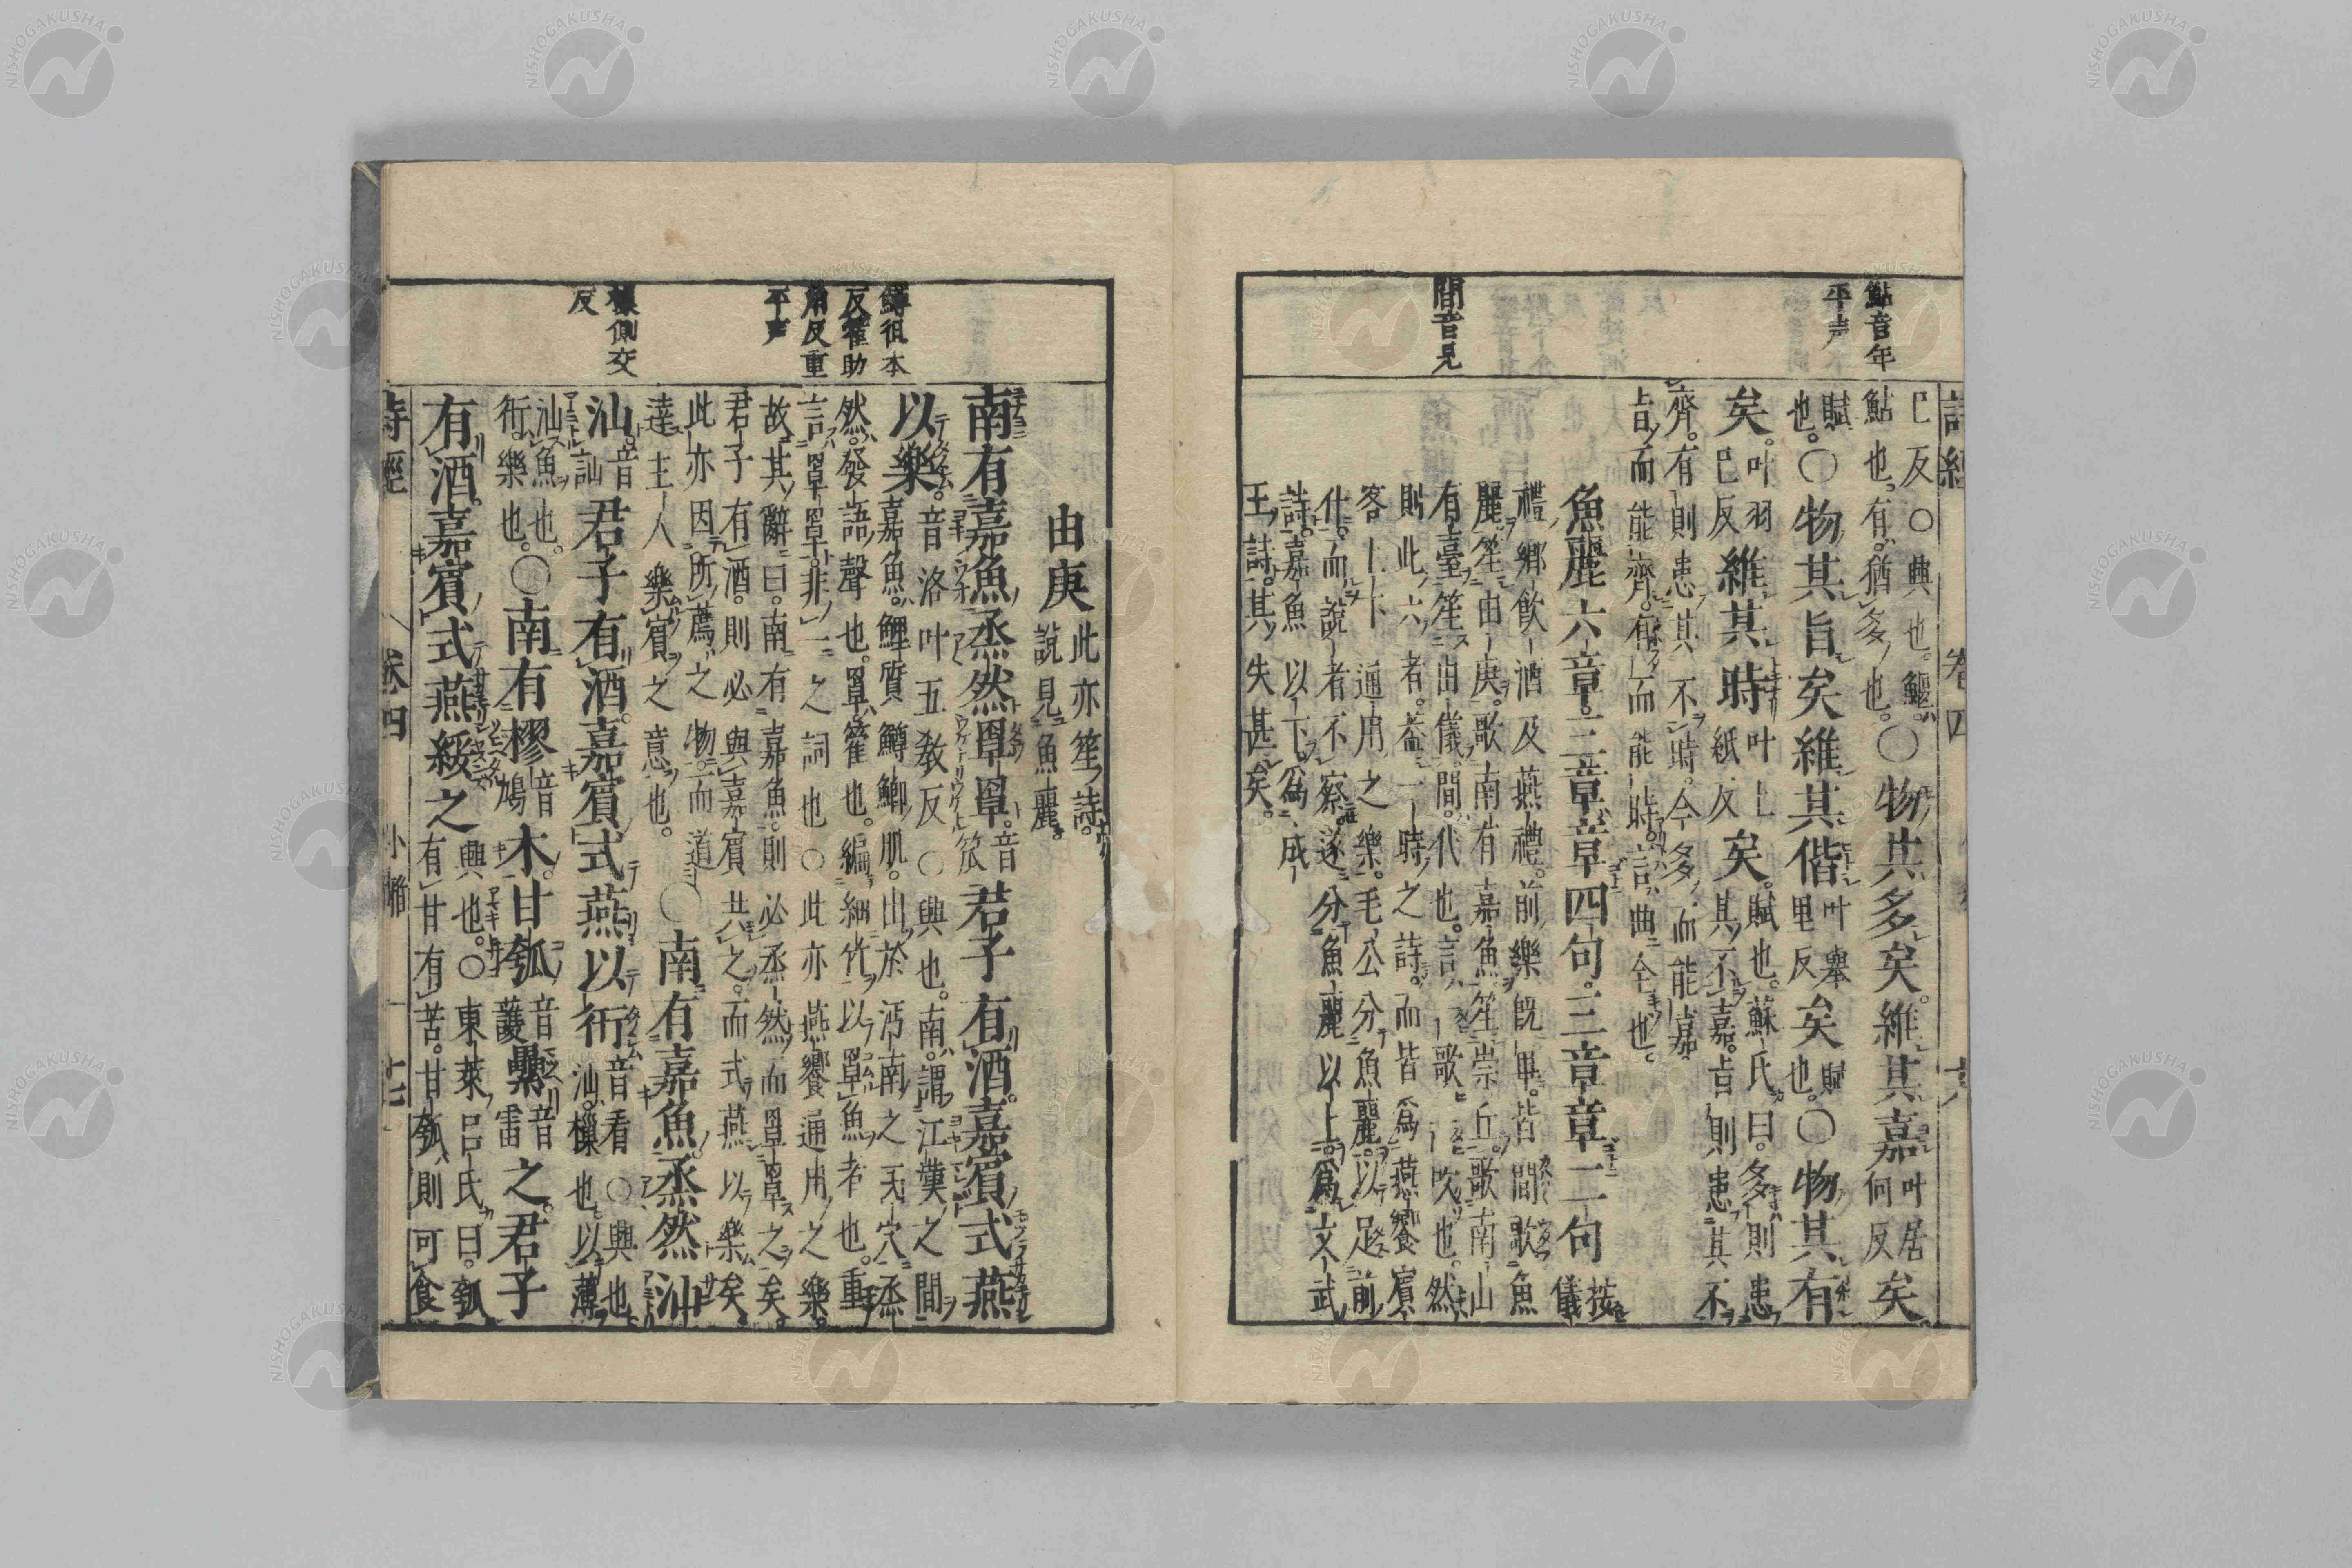 詩經 卷四
鮎音年
平声
間音見
巳反○興也鰋
鮎也有猶多也○物其多矣維其嘉叶居何反矣
賦也○物其旨矣維其偕叶舉里反矣賦也○物其有
矣叶羽巳反維其時叶上紙反矣賦也蘇氏曰多則患
其不嘉旨則患其不
齊有則患其不時今多而能嘉
旨而能齊有而能時言曲全也
魚麗六章三章章四句三章章二句按儀
禮鄉飲酒及燕禮前樂旣畢皆間歌魚
麗笙由庚歌南有嘉魚笙崇丘歌南山
有臺笙由儀間代也言一歌一吹也然
則此六者蓋一時之詩而皆爲燕饗賓
客上下通用之樂毛公分魚麗以足前
什而說者不察遂分魚麗以上爲文武
詩嘉魚以下爲成
王詩其失甚矣
鱒徂本
反篧助
角反重
平声
樔側交
反
由庚此亦笙詩說見魚麗
南有嘉魚烝然罩罩音笊君子有酒嘉賓式燕
以樂音洛叶五教反○興也南謂江漢之間
嘉魚鯉質鱒鯽肌出於沔南之丙穴烝
然發語聲也罩篧也編細竹以罩魚者也重
言罩罩非一之詞也○此亦燕饗通用之樂
故其辭曰南有嘉魚則必烝然而罩罩之矣
君子有酒則必與嘉賓共之而式燕以樂矣
此亦因所薦之物而道
達主人樂賓之意也○南有嘉魚烝然汕
汕音訕君子有酒嘉賓式燕以衎音看○興也
汕樔也以薄
汕魚也
衎樂也○南有樛音鳩木甘瓠音護纍音雷之君子
有酒嘉賓式燕綏之興也○東萊呂氏曰瓠
有甘有苦甘瓠則可食
詩經 卷四 小雅 十七